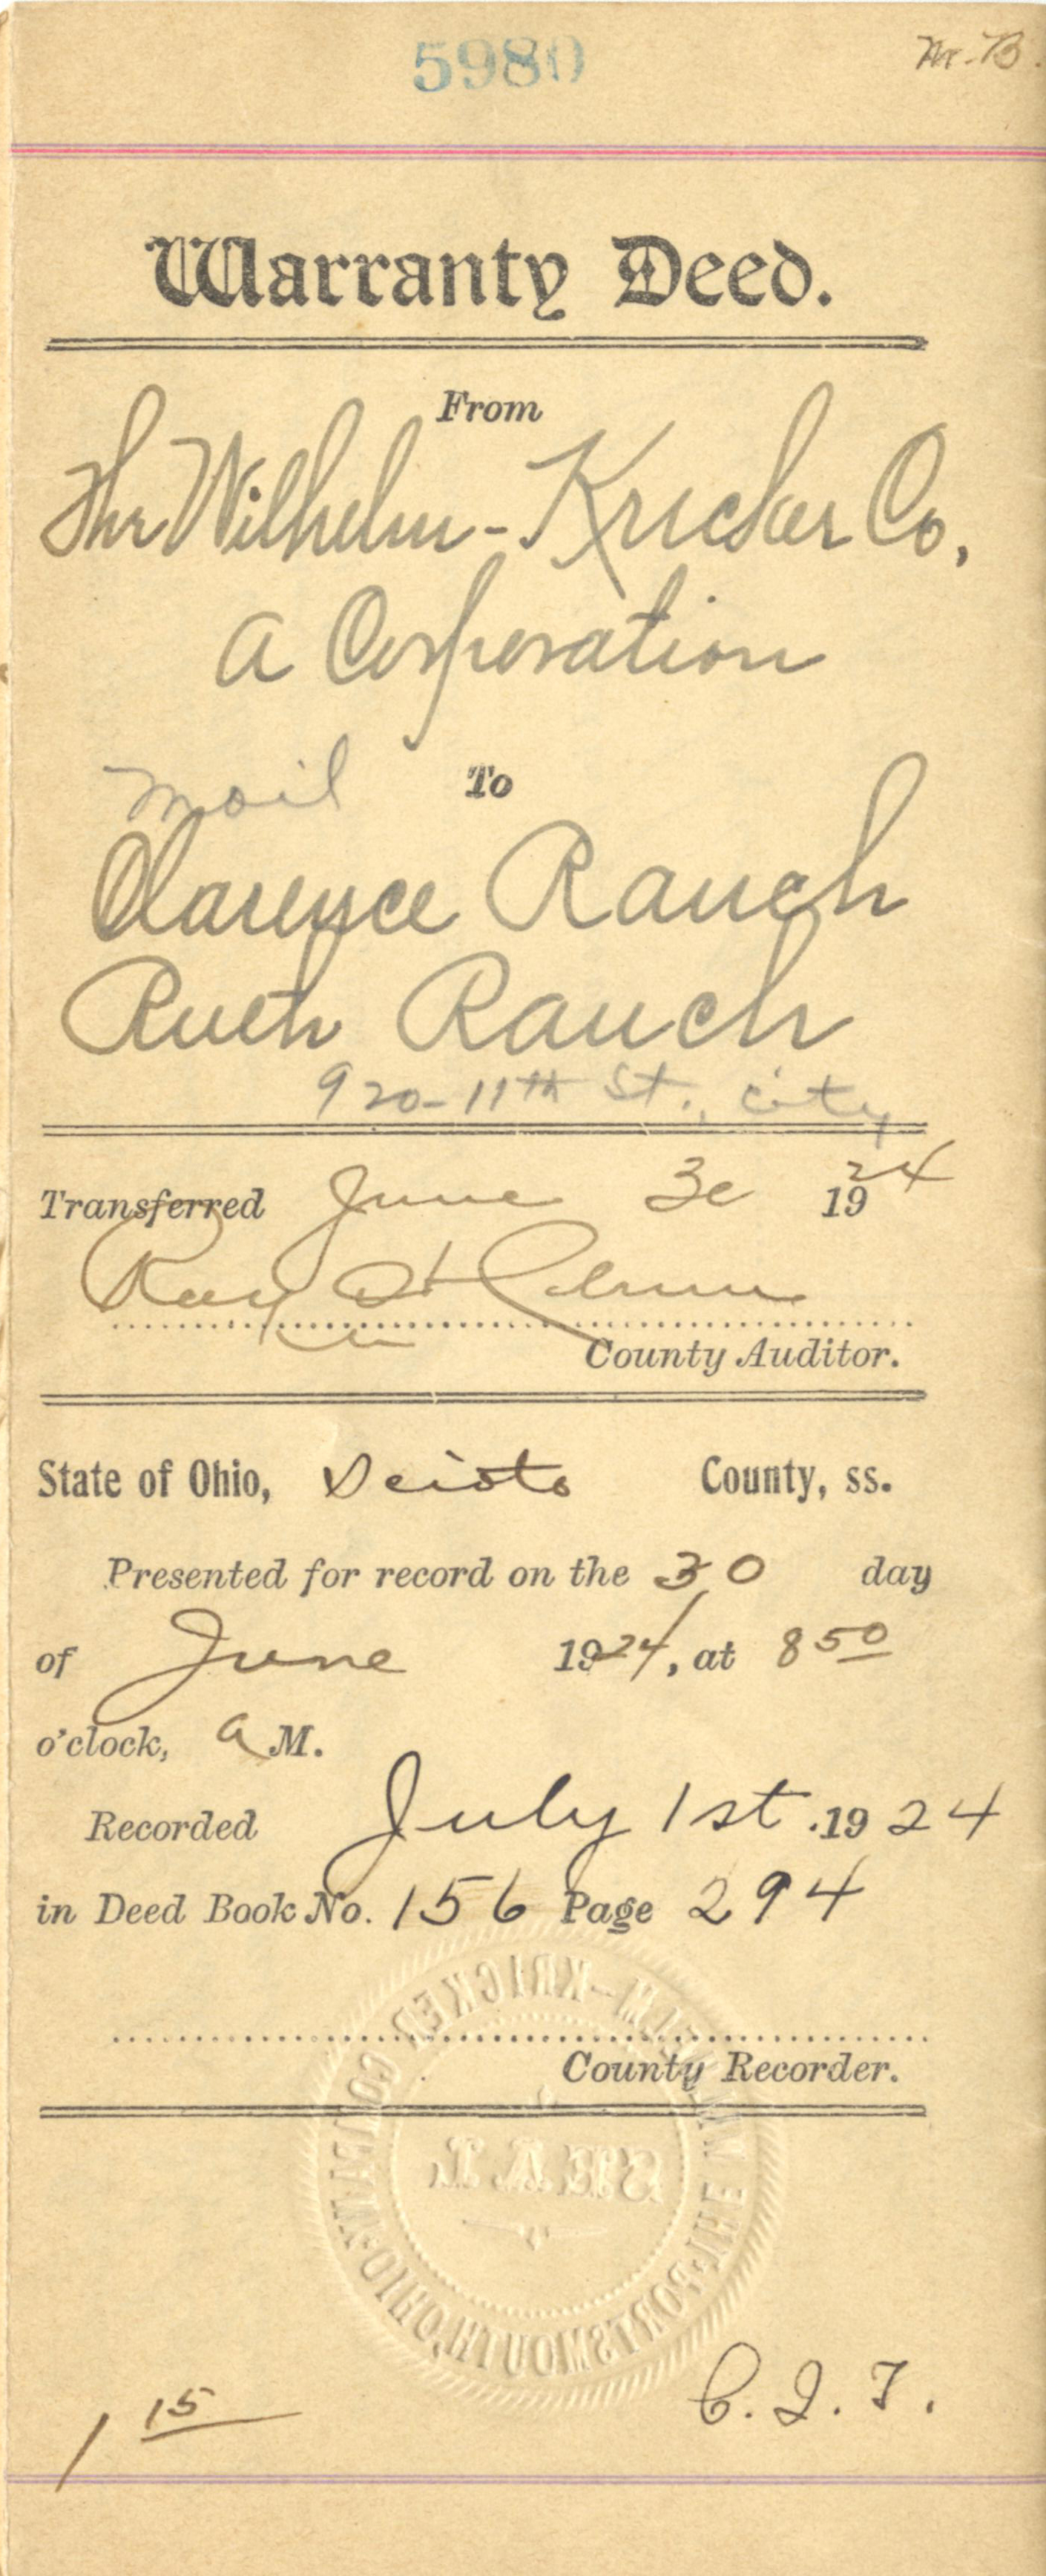 5980
Mr. B.
Warranty Deed.
From
The Wilhelm-Kricker Co,
a Corporation
mail
To
Clarence Rauch
Ruth Rauch
920-11th St., city
Transferred June 30 1924
Ray
County Auditor.
State of Ohio, Scioto County, ss.
Presented for record on the 30 day
of June 1924, at 8 50
o'clock, a M.
Recorded July 1st. 1924
in Deed Book No. 156 Page 294
County Recorder.
THE WILHELM-KRICKER COMPANY
SEAL
PORTSMOUTH, OHIO.
1 15
C. I. T.